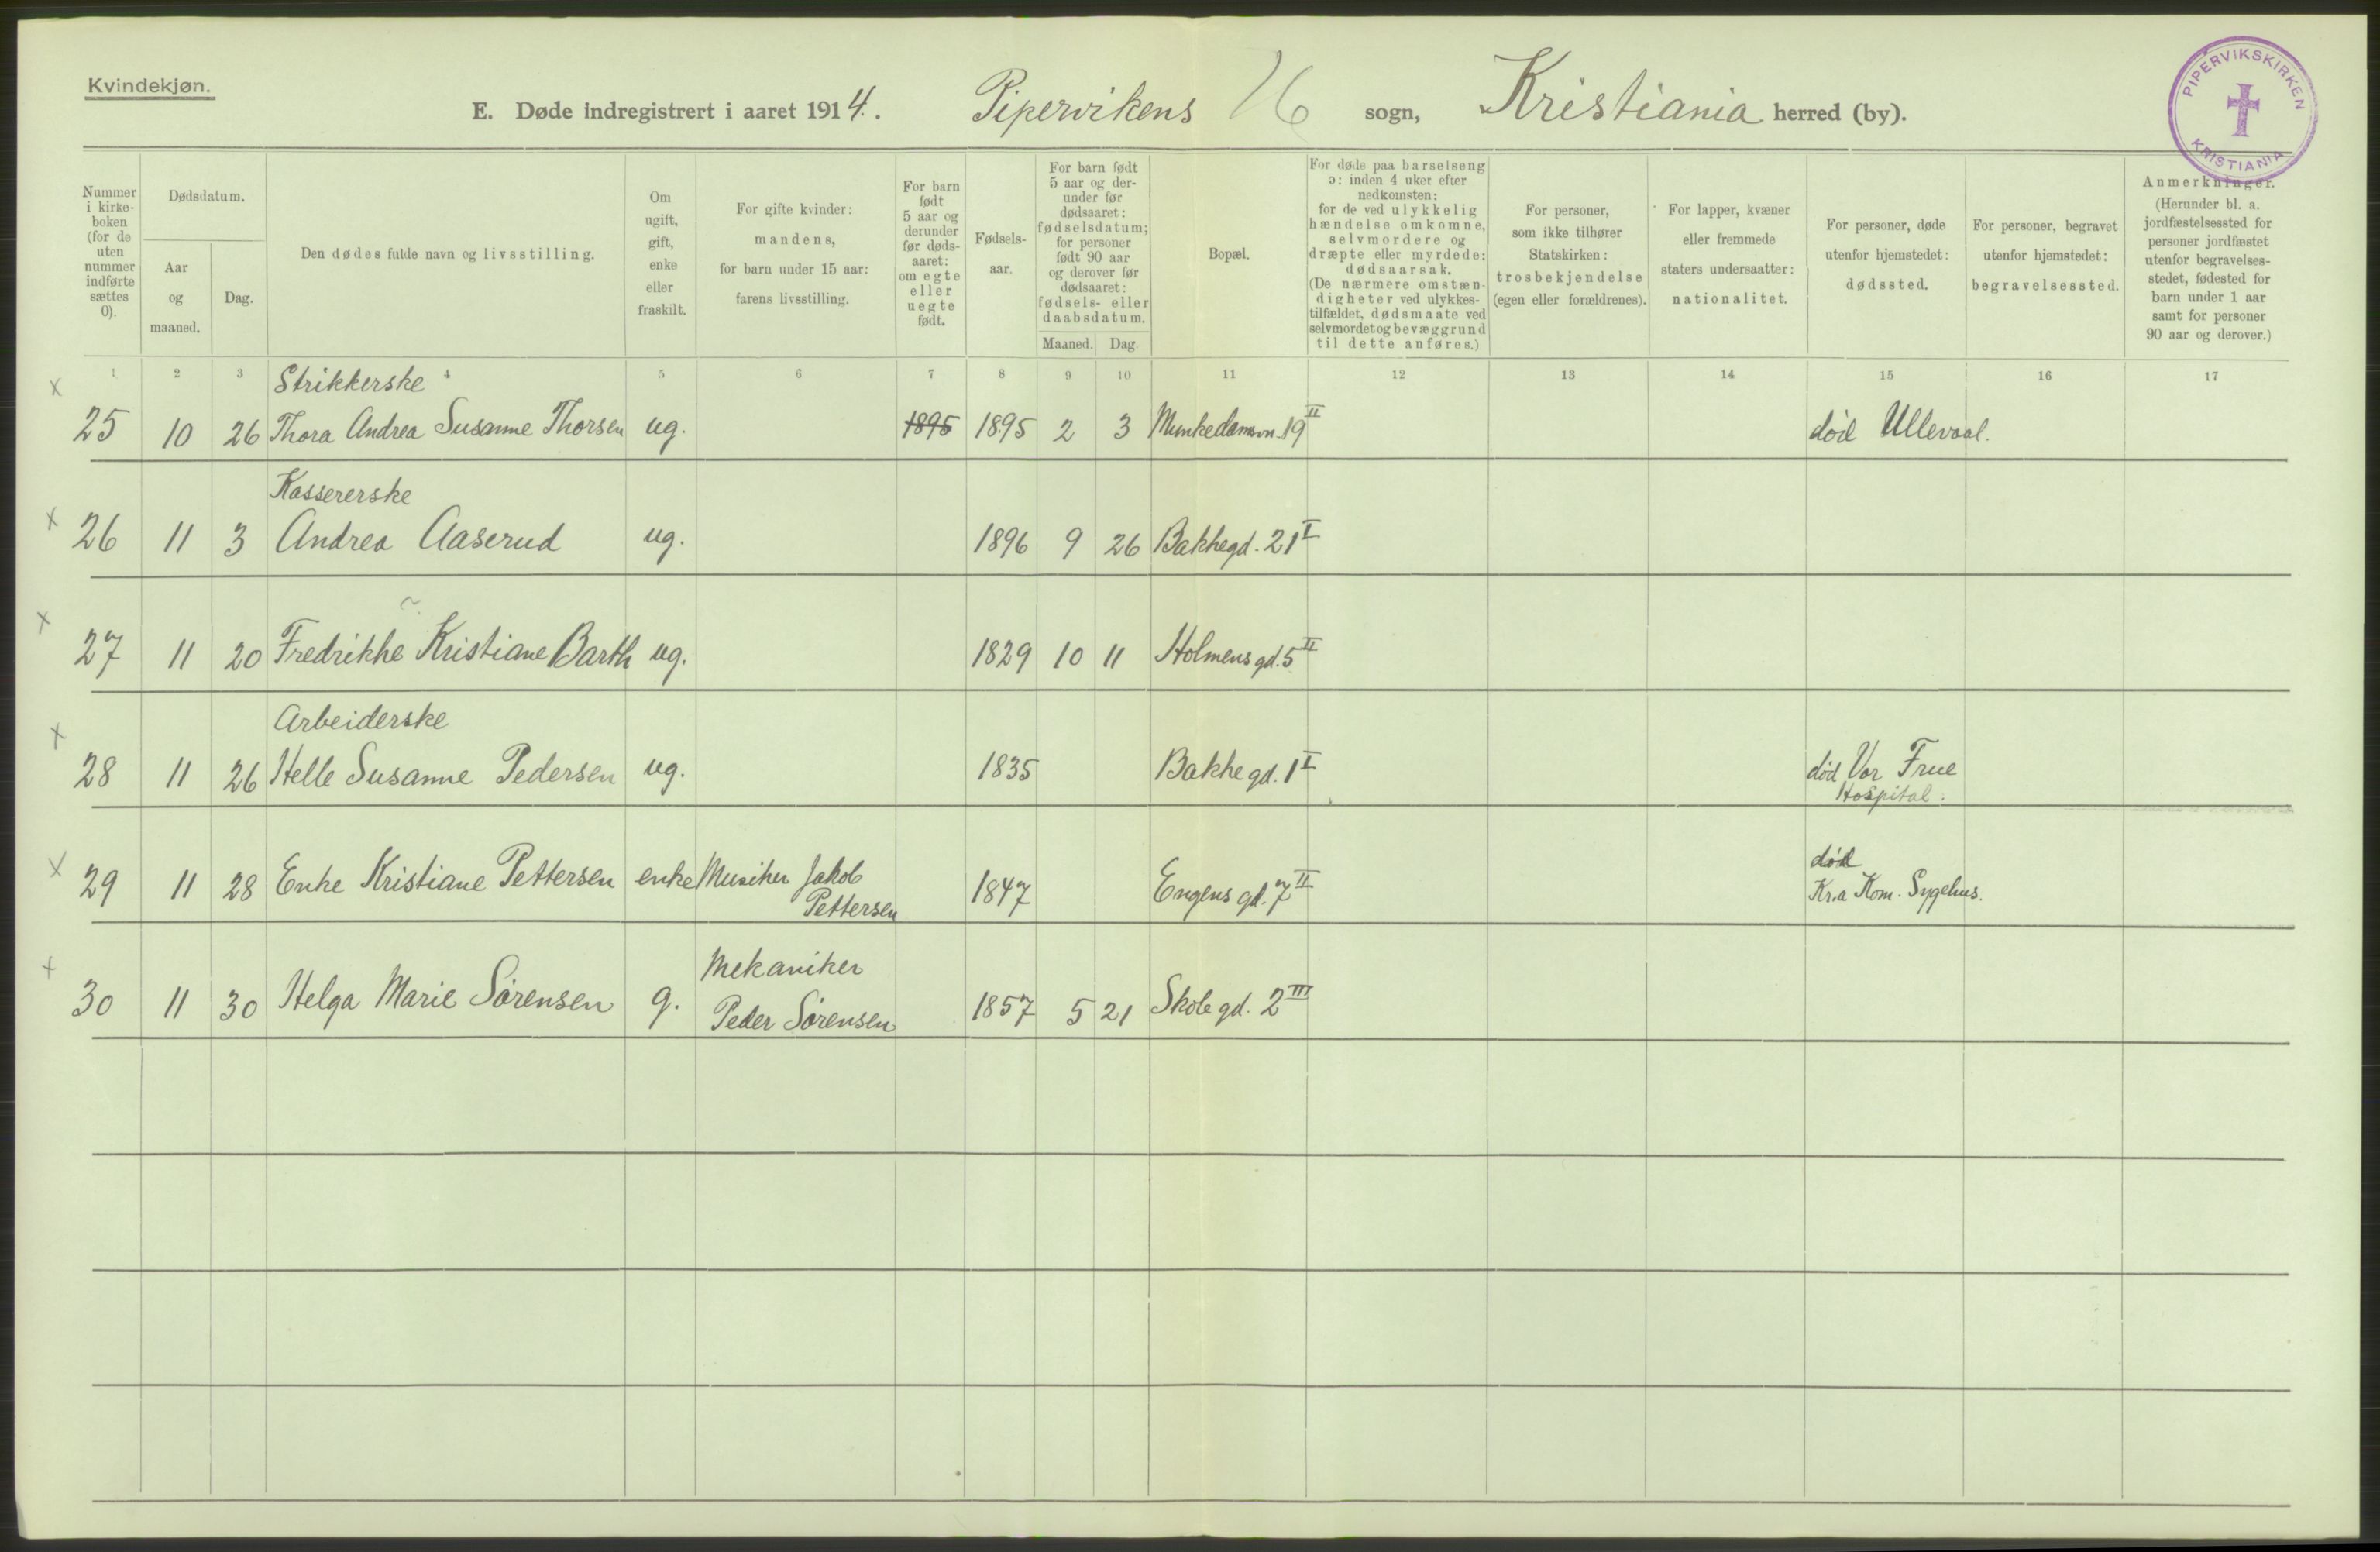 Kvindekjøn.
E. Døde indregistrert i aaret 1914. Pipervikens sogn, Kristiania herred (by).
PIPERVIKSKIRKEN
KRISTIANIA
Nummer
i kirke-
boken
(for de
uten
nummer
indførte
sættes
0).
Dødsdatum.
Aar
og
maaned.
Dag.
Den dødes fulde navn og livsstilling.
Om
ugift,
gift,
enke
eller
fraskilt.
For gifte kvinder:
mandens,
for barn under 15 aar:
farens livsstilling.
For barn
født
5 aar og
derunder
før døds-
aaret:
om egte
eller
uegte
født.
Fødsels-
aar.
For barn født
5 aar og der-
under før
dødsaaret:
fødselsdatum;
for personer
født 90 aar
og derover før
dødsaaret:
fødsels- eller
daabsdatum.
Maaned. Dag.
Bopæl.
For døde paa barselseng
ɔ: inden 4 uker efter
nedkomsten:
for de ved ulykkelig
hændelse omkomne,
selvmordere og
dræpte eller myrdede:
dødsaarsak.
(De nærmere omstæn-
digheter ved ulykkes-
tilfældet, dødsmaate ved
selvmordet og bevæggrund
til dette anføres.)
For personer,
som ikke tilhører
Statskirken:
trosbekjendelse
(egen eller forældrenes).
For lapper, kvæner
eller fremmede
staters undersaatter:
nationalitet.
For personer, døde
utenfor hjemstedet:
dødssted.
For personer, begravet
utenfor hjemstedet:
begravelsessted.
Anmerkninger.
(Herunder bl. a.
jordfæstelsessted for
personer jordfæstet
utenfor begravelses-
stedet, fødested for
barn under 1 aar
samt for personer
90 aar og derover.)
1 2 3 4 5 6 7 8 9 10 11 12 13 14 15 16 17
x Strikkerske
25 10 26 Thora Andrea Susanne Thorsen ug. 1895 1895 2 3 Munkedamsvn. 19 II død Ullevaal.
Kassererske
x 26 11 3 Andrea Aaserud ug. 1896 9 26 Bakkegd. 21 I
x 27 11 20 Fredrikke Kristiane Barth ug. 1829 10 11 Holmensgd. 5 II
Arbeiderske
x 28 11 26 Helle Susanne Pedersen ug. 1835 Bakkegd. 1 I død Vor Frue
Hospital.
død
x 29 11 28 Enke Kristiane Pettersen enke Musiker Jakob 1847 Engensgd. 7 II Kr.a Kom. Sygehus.
Pettersen
Mekaniker
x 30 11 30 Helga Marie Sørensen g. Peder Sørensen 1857 5 21 Skolegd. 2 III